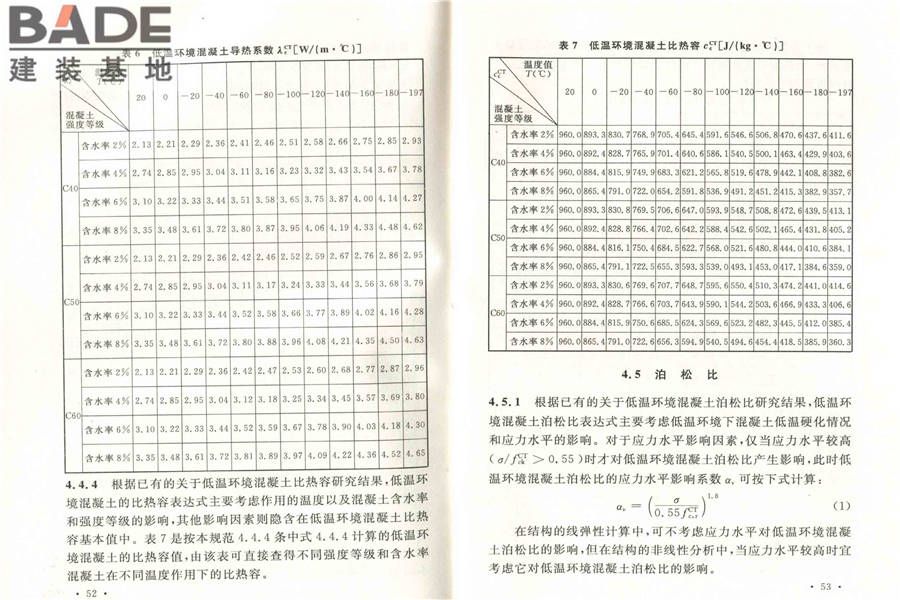 BADE
建装基地
表 6 低温环境混凝土导热系数 λcCT[W/(m·℃)]
T(℃)
混凝土
强度等级
20 0 −20 −40 −60 −80 −100 −120 −140 −160 −180 −197
C40
含水率 2% 2.13 2.21 2.29 2.36 2.41 2.46 2.51 2.58 2.66 2.75 2.85 2.93
含水率 4% 2.74 2.85 2.95 3.04 3.11 3.16 3.23 3.32 3.43 3.54 3.67 3.78
含水率 6% 3.10 3.22 3.33 3.44 3.51 3.58 3.65 3.75 3.87 4.00 4.14 4.27
含水率 8% 3.35 3.48 3.61 3.72 3.80 3.87 3.95 4.06 4.19 4.33 4.48 4.62
C50
含水率 2% 2.13 2.21 2.29 2.36 2.42 2.46 2.52 2.59 2.67 2.76 2.86 2.95
含水率 4% 2.74 2.85 2.95 3.04 3.11 3.17 3.24 3.33 3.44 3.56 3.68 3.79
含水率 6% 3.10 3.22 3.33 3.44 3.52 3.58 3.66 3.77 3.89 4.02 4.16 4.28
含水率 8% 3.35 3.48 3.61 3.72 3.80 3.88 3.96 4.08 4.21 4.35 4.50 4.63
C60
含水率 2% 2.13 2.21 2.29 2.36 2.42 2.47 2.53 2.60 2.68 2.77 2.87 2.96
含水率 4% 2.74 2.85 2.95 3.04 3.12 3.18 3.25 3.34 3.45 3.57 3.69 3.80
含水率 6% 3.10 3.22 3.33 3.44 3.52 3.59 3.67 3.78 3.90 4.03 4.18 4.30
含水率 8% 3.35 3.48 3.61 3.72 3.81 3.89 3.97 4.09 4.22 4.36 4.52 4.65
4.4.4 根据已有的关于低温环境混凝土比热容研究结果,低温环
境混凝土的比热容表达式主要考虑作用的温度以及混凝土含水率
和强度等级的影响,其他影响因素则隐含在低温环境混凝土比热
容基本值中。表 7 是按本规范 4.4.4 条中式 4.4.4 计算的低温环
境混凝土的比热容值,由该表可直接查得不同强度等级和含水率
混凝土在不同温度作用下的比热容。
· 52 ·
表 7 低温环境混凝土比热容 ccCT[J/(kg·℃)]
ccCT
温度值
T(℃)
混凝土
强度等级
20 0 −20 −40 −60 −80 −100 −120 −140 −160 −180 −197
C40
含水率 2% 960.0 893.3 830.7 768.9 705.4 645.4 591.6 546.6 506.8 470.6 437.6 411.6
含水率 4% 960.0 892.4 828.7 765.9 701.4 640.6 586.1 540.5 500.1 463.4 429.9 403.6
含水率 6% 960.0 884.4 815.9 749.9 683.3 621.2 565.8 519.6 478.9 442.1 408.8 382.6
含水率 8% 960.0 865.4 791.0 722.0 654.2 591.8 536.9 491.2 451.2 415.3 382.9 357.7
C50
含水率 2% 960.0 893.3 830.8 769.5 706.6 647.0 593.9 548.7 508.8 472.6 439.5 413.1
含水率 4% 960.0 892.4 828.8 766.4 702.6 642.2 588.4 542.6 502.1 465.4 431.8 405.2
含水率 6% 960.0 884.4 816.1 750.4 684.5 622.7 568.0 521.6 480.8 444.0 410.6 384.1
含水率 8% 960.0 865.4 791.1 722.5 655.3 593.3 539.0 493.1 453.0 417.1 384.6 359.0
C60
含水率 2% 960.0 893.3 830.6 769.6 707.7 648.7 595.6 550.4 510.3 474.2 441.0 414.6
含水率 4% 960.0 892.4 828.7 766.6 703.7 643.9 590.1 544.2 503.6 466.9 433.3 406.6
含水率 6% 960.0 884.4 815.9 750.6 685.5 624.3 569.6 523.2 482.3 445.5 412.0 385.4
含水率 8% 960.0 865.4 791.0 722.6 656.3 594.9 540.5 494.6 454.4 418.5 385.9 360.3
4.5 泊松比
4.5.1 根据已有的关于低温环境混凝土泊松比研究结果,低温环
境混凝土泊松比表达式主要考虑低温环境下混凝土低温硬化情况
和应力水平的影响。对于应力水平影响因素,仅当应力水平较高
(σ/fckCT > 0.55)时才对低温环境混凝土泊松比产生影响,此时低
温环境混凝土泊松比的应力水平影响系数 αν 可按下式计算:
αν = (σ / 0.55fcuTCT)^1.8 (1)
在结构的线弹性计算中,可不考虑应力水平对低温环境混凝
土泊松比的影响,但在结构的非线性分析中,当应力水平较高时宜
考虑它对低温环境混凝土泊松比的影响。
· 53 ·